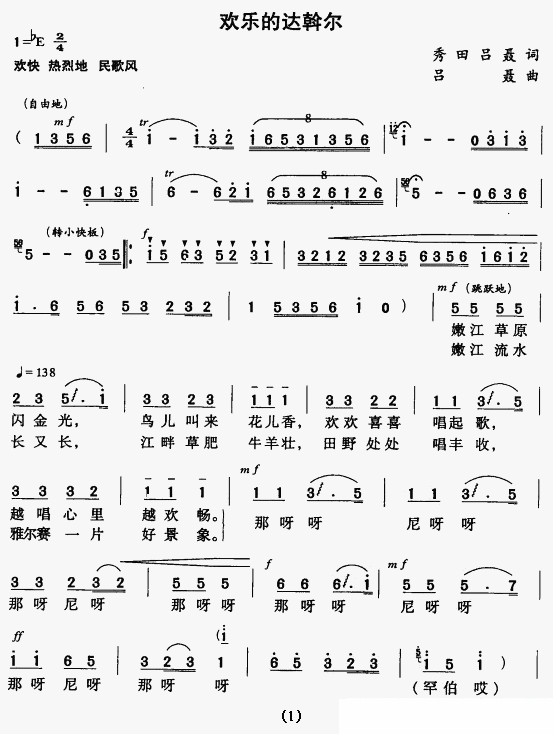 欢乐的达斡尔
1=♭E 2/4
欢快 热烈地 民歌风
秀田吕聂 词
吕 聂 曲
(自由地)
mf tr 8
( 1 3 5 6 | 4/4 i - i 3 2 | 1 6 5 3 1 3 5 6 | i - - 0 3 1 3 |
tr 8
i - - 6 1 3 5 | 6 - 6 2 i | 6 5 3 2 6 1 2 6 | 5 - - 0 6 3 6 |
(转小快板) f
5 - - 0 3 5 | i 5 6 3 5 2 3 1 | 3 2 1 2 3 2 3 5 6 3 5 6 i 6 i 2 |
mf (跳跃地)
i . 6 5 6 5 3 2 3 2 | 1 5 3 5 6 i 0 ) | 5 5 5 5 |
嫩江 草原
嫩江 流水
♩=138
2 3 5 . i | 3 3 2 3 | 1 1 1 | 3 3 2 2 | 1 1 3 . 5 |
闪金光, 鸟儿叫来 花儿香, 欢欢喜喜 唱起歌,
长又长, 江畔草肥 牛羊壮, 田野处处 唱丰收,
mf
3 3 3 2 | 1 1 1 | 1 1 3 . 5 | 1 1 3 . 5 |
越唱心里 越欢畅。 那呀呀 尼呀呀
雅尔赛一片 好景象。
f mf
3 3 2 3 2 | 5 5 5 5 5 5 | 6 6 6 . i | 5 5 5 . 7 |
那呀尼呀 那呀呀 那呀呀 尼呀呀
ff (i
i i 6 5 | 3 2 3 1 | 6 5 3 2 3 | i 5 i ) |
那呀尼呀 那呀 呀 (罕伯 哎)
(1)